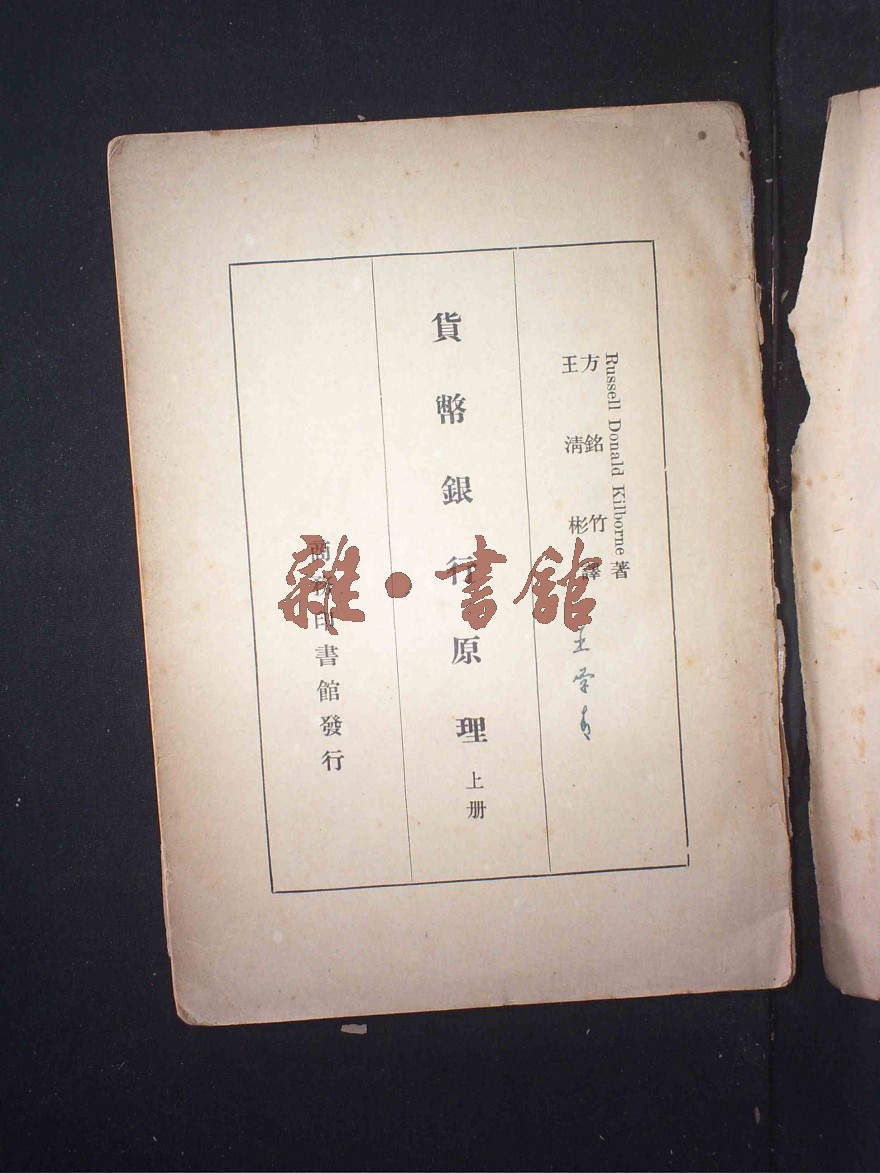 Russell Donald Kilborne 著
方銘竹
王清彬
譯
貨幣銀行原理 上册
商務印書館發行
雜·書館